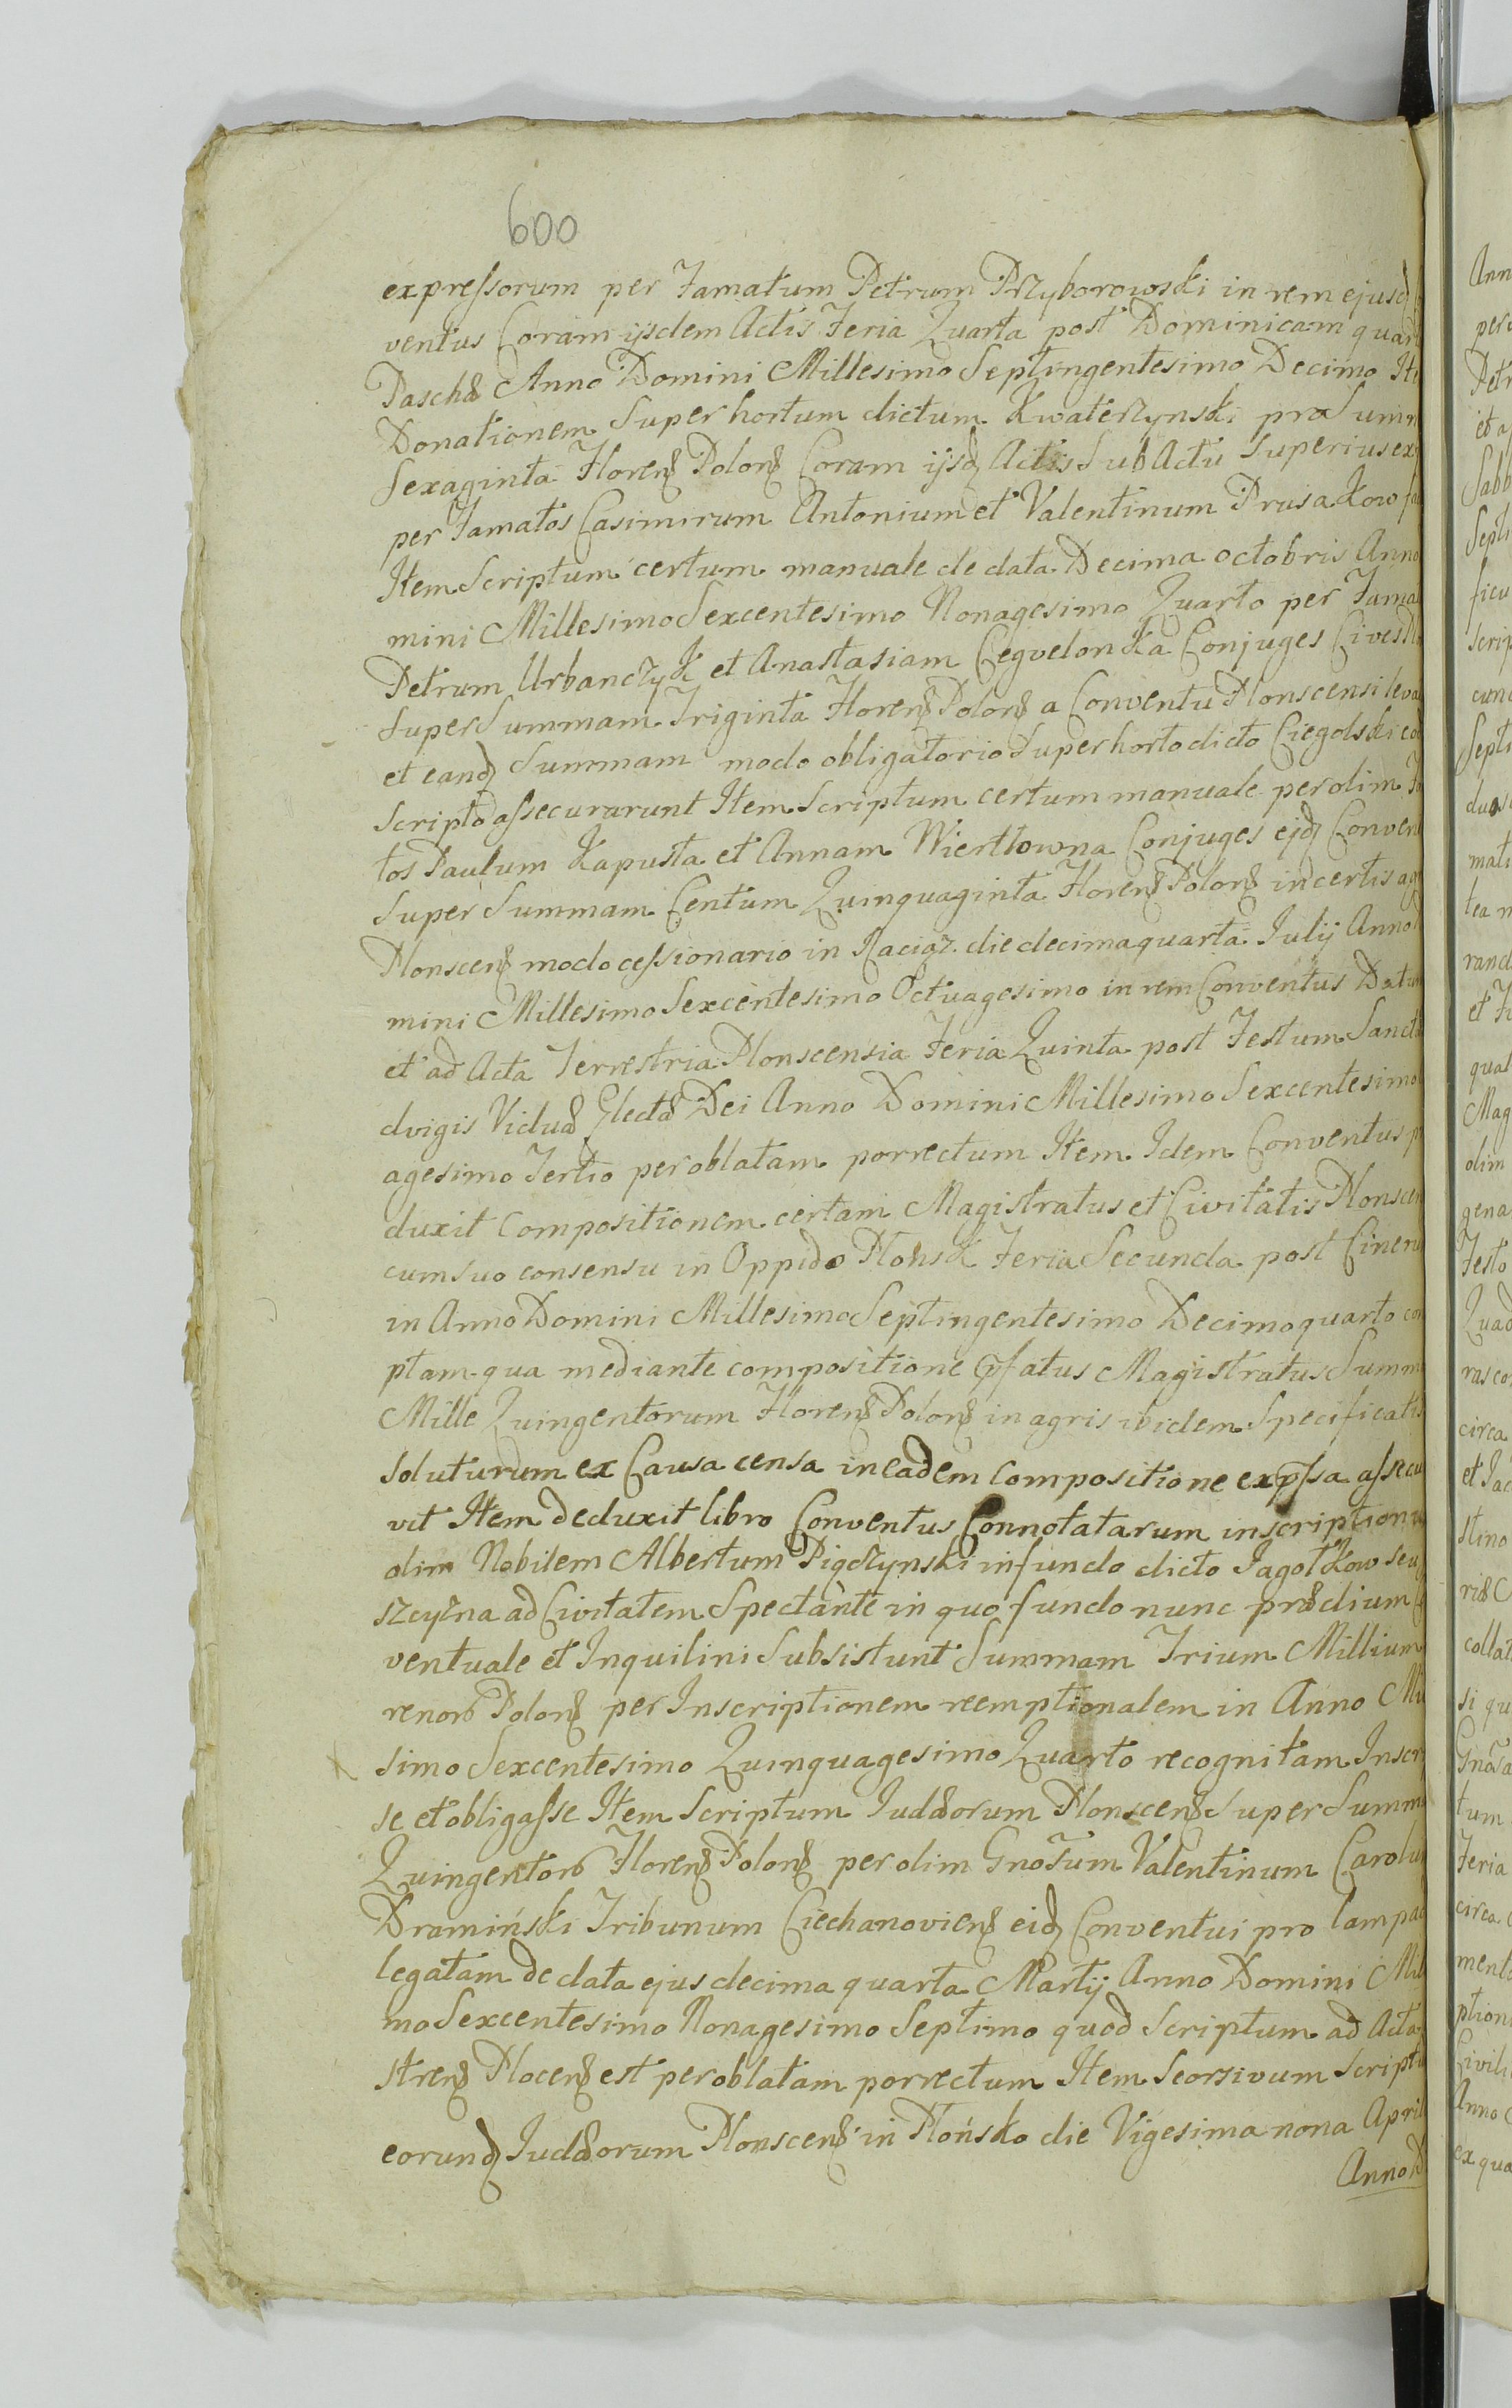 600
expressorum per Famatum Petrum Przyborowski in rem ejusd
ventus Coram ijsdem Actis Feria Quarta post Dominicam quar
Paschæ Anno Domini Millesimo Septingentesimo Decimo It
Donationem Super hortum dictum Kwaterzynski pro Sum
Sexaginta Floren Polon Coram ijsq Actis Sub Actu Superius ex
per Famatos Casimirum Antonium et Valentinum Prusakow fa
Item Scriptum certum manuale de data Decima octobris Anno
mini Millesimo Sexcentesimo Nonagesimo Quarto per Fama
Petrum Urbanczyk et Anastasiam Cegvelonka Conjuges Cives
Super Summam Triginta Floren Polon a Conventu Plonscensi leva
et eand Summam modo obligatorio Super horto dicto Ciegolski eo
Scripto assecurarunt Item Scriptum certum manuale per olim Fa
tos Paulum Kapusta et Annam Wiertlowna Conjuges ejd Conven
Super Summam Centum Quinquaginta Floren Polon in certis ag
Plonscen modo cessionario in Raciąz die decima quarta Julij Anno
mini Millesimo Sexcentesimo Octuagesimo in rem Conventus Datum
et ad Acta Terrestria Plonscensia Feria Quinta post Festum Sanct
dvigis Viduæ Electæ Dei Anno Domini Millesimo Sexcentesimo
agesimo Tertio per oblatam porrectum Item Idem Conventus p
duxit Compositionem certam Magistratus et Civitatis Plonscen
cum suo consensu in Oppido Płońsk Feria Secunda post Ciner
in Anno Domini Millesimo Septingentesimo Decimo quarto con
ptam qua mediante compositione pfatus Magistratus Summ
Mille Quingentorum Floren Polon in agris ibidem Specificatis
soluturum ex Causa censa in eadem Compositione expssa assecu
vit Item deduxit libro Conventus Connotatarum inscriptionu
olim Nobilem Albertum Pigczynski in fundo dicto Jagotkow seu
szczyzna ad Civitatem Spectante in quo fundo nunc prædium
ventuale et Inquilini Subsistunt Summam Trium Millium
renor Polon per Inscriptionem reemptionalem in Anno Mil
simo Sexcentesimo Quinquagesimo Quarto recognitam Inscr
se et obligasse Item Scriptum Judæorum Plonscen Super Summ
Quingentor Floren Polon per olim Gnosum Valentinum Carolu
Dramiński Tribunum Ciechanovien eid Conventui pro lampad
legatam de data ejus decima quarta Martij Anno Domini Mil
mo Sexcentesimo Nonagesimo Septimo quod Scriptum ad Acta
stren Plocen est per oblatam porrectum Item Seorsivum Script
eorund Judæorum Plonscen in Płońsko die Vigesima nona April
Anno D